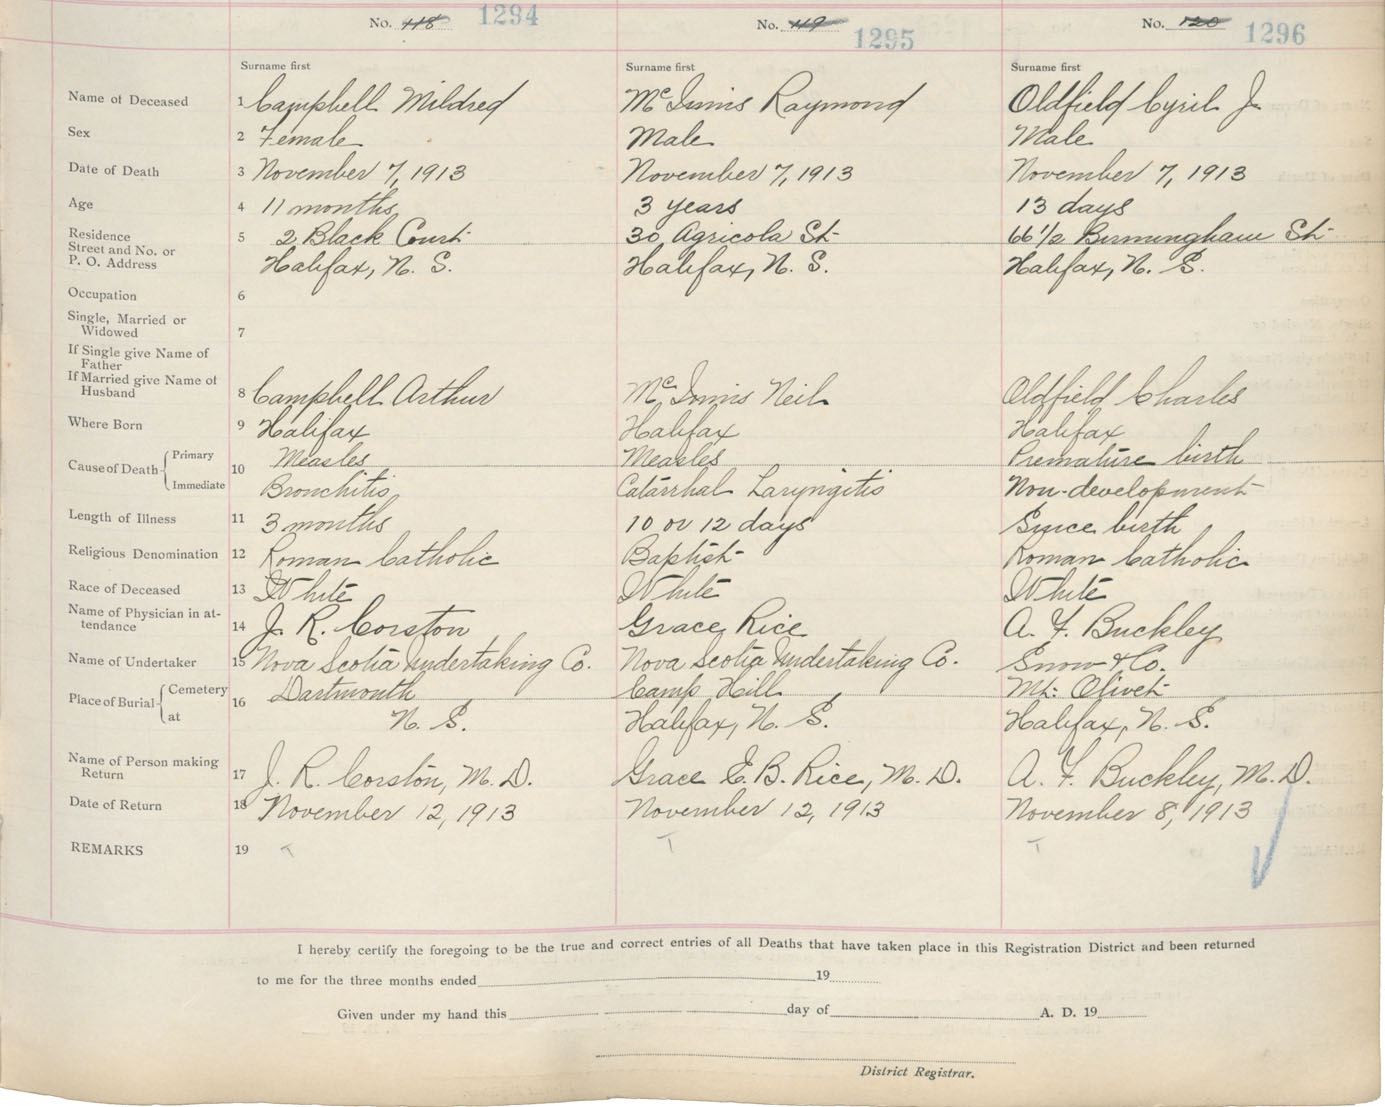 No. 118 1294 No. 119 1295 No. 120 1296
Surname first Surname first Surname first
Name of Deceased 1 Campbell Mildred McInnis Raymond Oldfield Cyril J.
Sex 2 Female Male Male
Date of Death 3 November 7, 1913 November 7, 1913 November 7, 1913
Age 4 11 months 3 years 13 days
Residence
Street and No. or 5 2 Black Court 30 Agricola St 66 1/2 Birmingham St
P. O. Address Halifax, N. S. Halifax, N. S. Halifax, N. S.
Occupation 6
Single, Married or
Widowed 7
If Single give Name of
Father
If Married give Name of
Husband 8 Campbell Arthur McInnis Neil Oldfield Charles
Where Born 9 Halifax Halifax Halifax
Cause of Death 10 Primary Measles Measles Premature birth
Immediate Bronchitis Catarrhal Laryngitis Non-development
Length of Illness 11 3 months 10 or 12 days Since birth
Religious Denomination 12 Roman Catholic Baptist Roman Catholic
Race of Deceased 13 White White White
Name of Physician in at-
tendance 14 J. R. Corston Grace Rice A. F. Buckley
Name of Undertaker 15 Nova Scotia Undertaking Co. Nova Scotia Undertaking Co. Snow & Co.
Place of Burial 16 Cemetery Dartmouth Camp Hill Mt. Olivet
at N. S. Halifax, N. S. Halifax, N. S.
Name of Person making
Return 17 J. R. Corston, M. D. Grace E. B. Rice, M. D. A. F. Buckley, M. D.
Date of Return 18 November 12, 1913 November 12, 1913 November 8, 1913
REMARKS 19 T T T
I hereby certify the foregoing to be the true and correct entries of all Deaths that have taken place in this Registration District and been returned
to me for the three months ended 19
Given under my hand this day of A. D. 19
District Registrar.